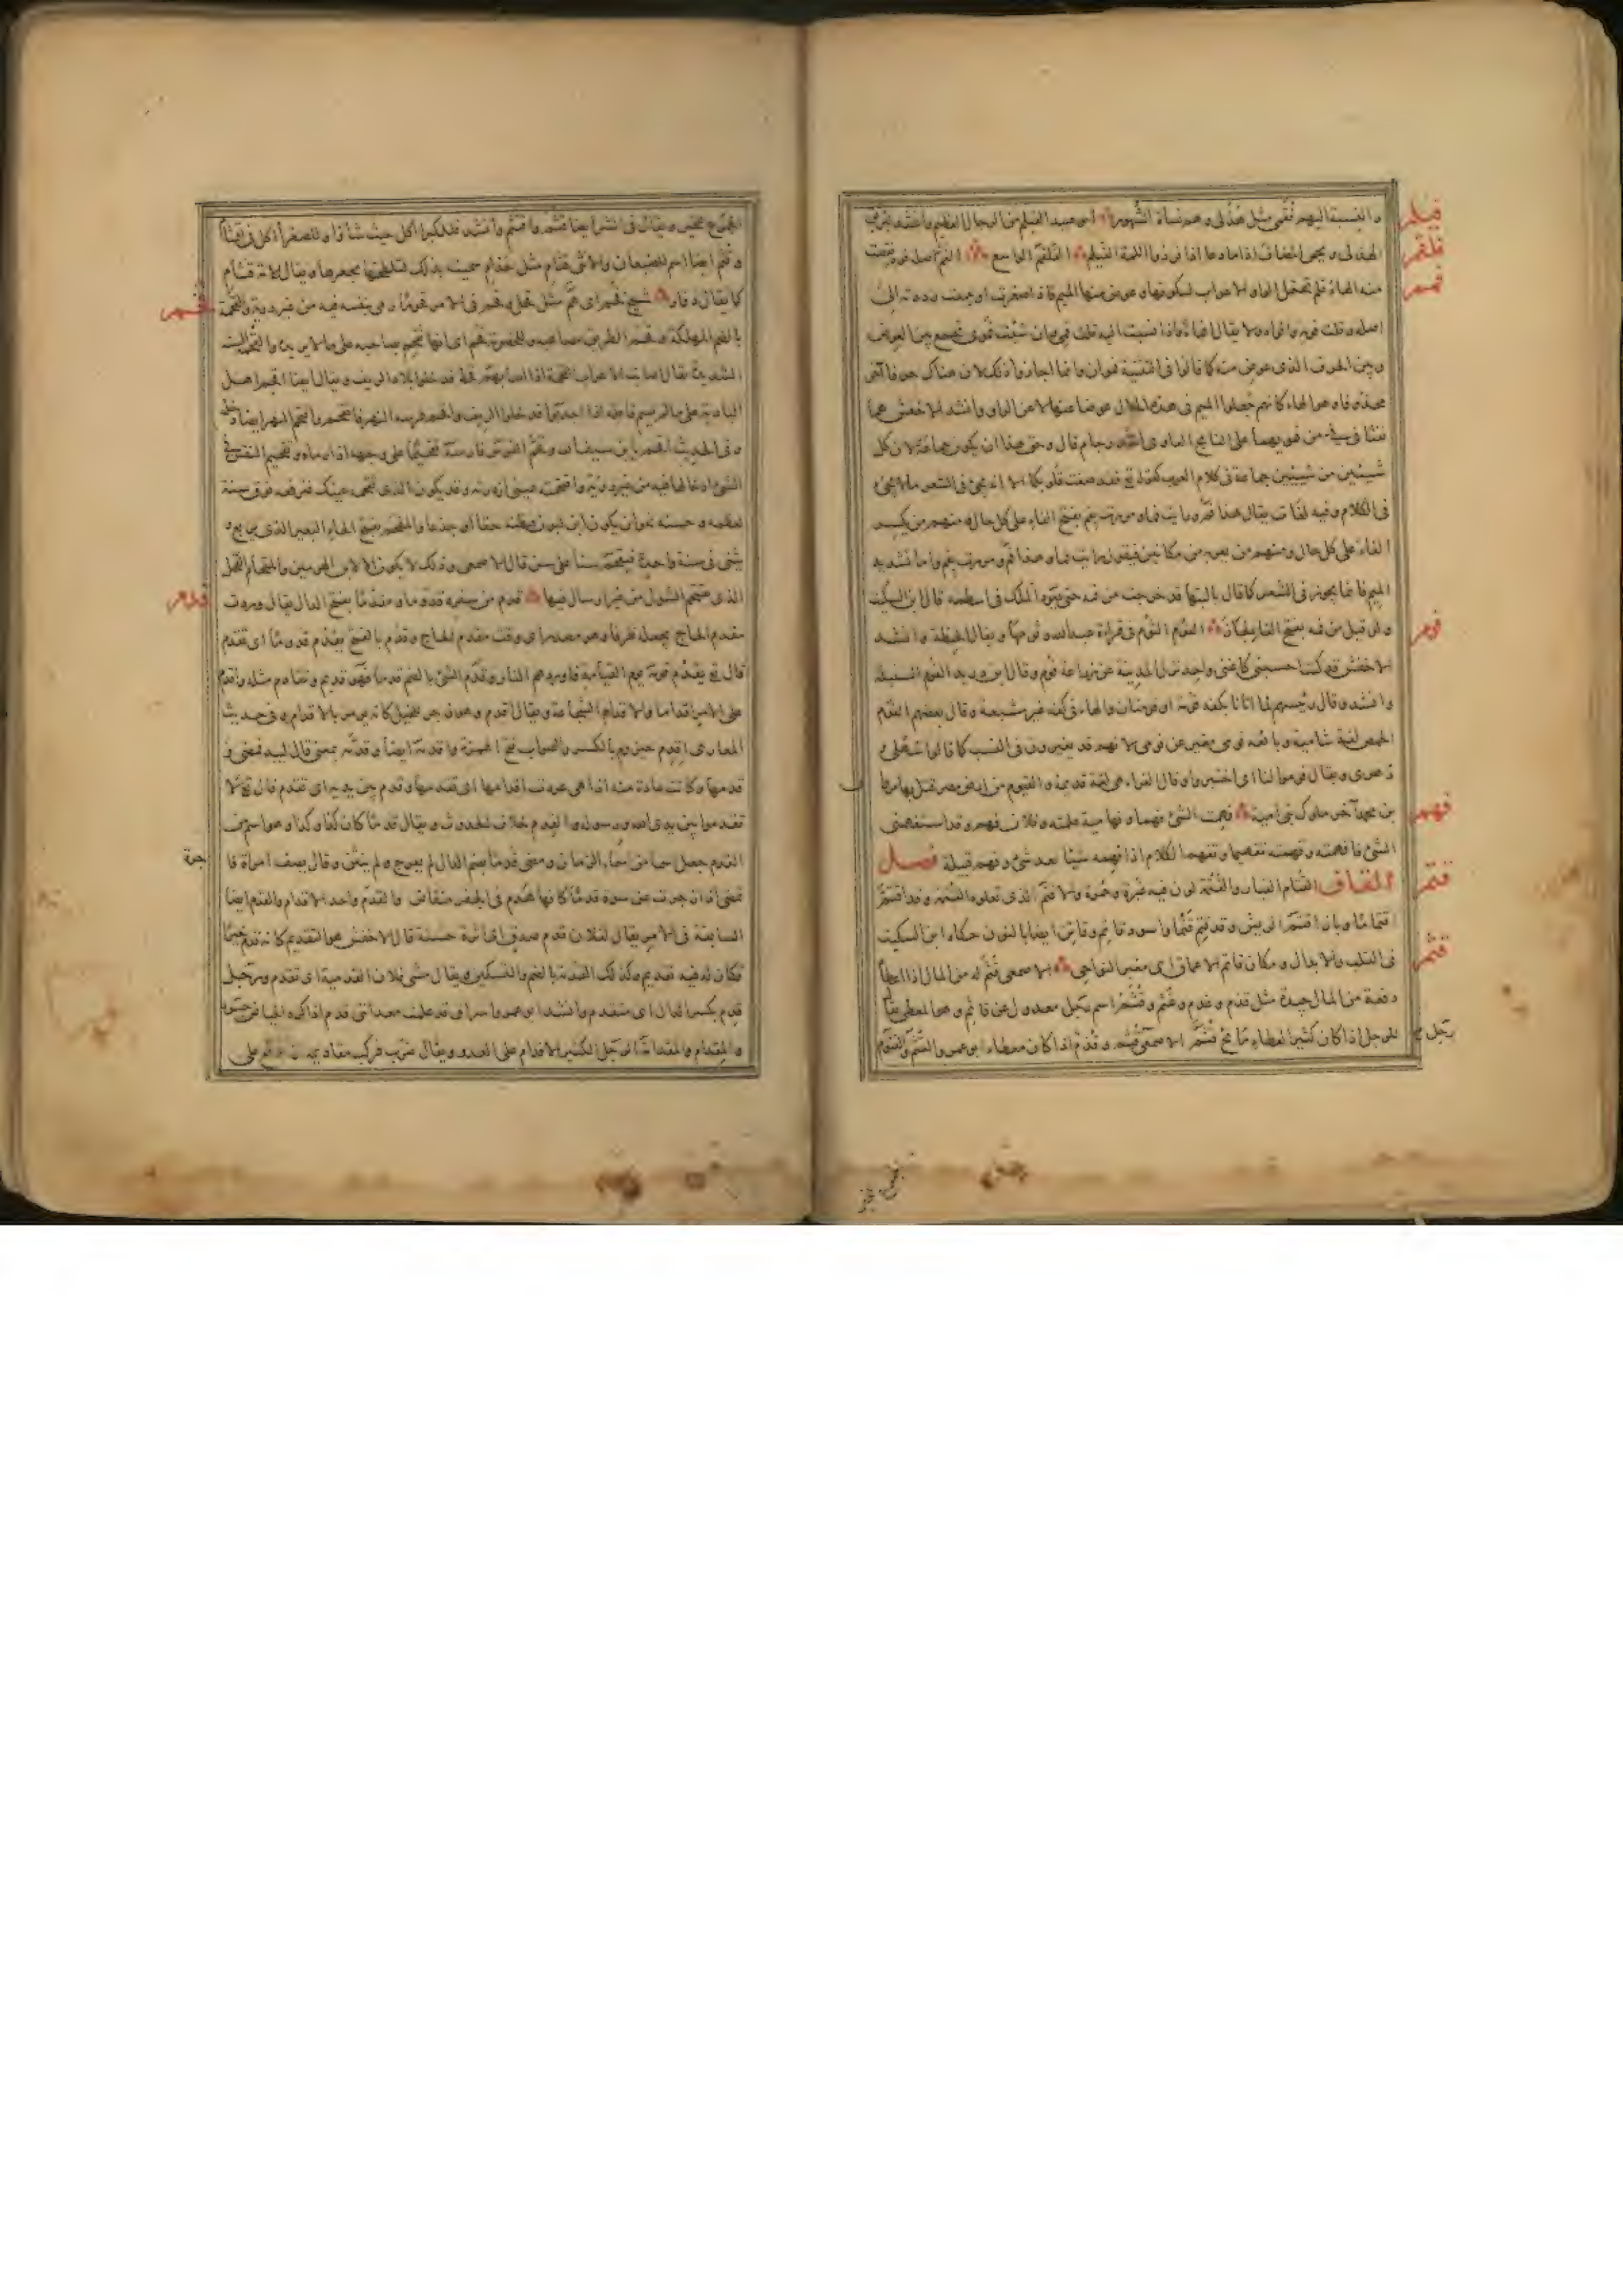 والنسبة اليهم فُقَمى مثل هُذَلى وهم نساة الشهور ابو عبيد الفيلم من الرجال العظيم وانشد لبريق
فيلم
الهذلى ويحمى المضاف اذا ما دعا اذا فر ذو اللمة الفيلم الفلقم الواسع الفم اصله فوه نقصت
فلقم
منه الهاء فلم تحتمل الواو الاعراب لسكونها وعوض منها الميم فاذا صغرت او جمعت رددته الى
فمم
اصله وقلت فويه وافواه ولا يقال افماء واذا نسبت اليه قلت فمى وان شئت فموى تجمع بين العوض
وبين الحرف الذى عوض منه كما قالوا فى التثنية فموان وانما اجازوا ذلك لان هناك حرفا آخر
محذوفا وهو الهاء كانهم جعلوا الميم فى هذه الحال عوضا عنها لا عن الواو وانشد الاخفش هما
نفثا فى فى من فمويهما على النابح العاوى اشد رجام قال وحق هذا ان يكون جماعة لان كل
شيئين من شيئين جماعة فى كلام العرب كقوله تع فقد صغت قلوبكما الا انه يجئ فى الشعر ما لا يجئ
فى الكلام وفيه لغات يقال هذا فم ورايت فما ومررت بفم بفتح الفاء على كل حال ومنهم من يكسر
الفاء على كل حال ومنهم من يعربه من مكانين فيقول رايت فما وهذا فم ومررت بفم واما تشديد
الميم فانما يجوز فى الشعر كما قال يا ليتها قد خرجت من فمه حتى يعود الملك فى اسطمه قال ابن السكيت
ولو قيل من فمه بفتح الفا لجاز الفوم الثوم فى قراءة عبد الله وثومها ويقال الحنطة وانشد
فوم
الاخفش قد كنت احسبنى كاغنى واجد نزل المدينة عن زراعة فوم وقال ابن دريد الفوم السنبلة
وانشد وقال ربيئهم لما اتانا بكفه فومة او فومتان والهاء فى كفه غير مشبعة وقال بعضهم الفوم
الحمص لغة شامية وبائعه فومى مغير عن فومى لانهم قد يغيرون فى النسب كما قالوا سهلى و
دهرى ويقال فوموا لنا اى اختبزوا وقال الفراء هى لغة قديمة والفيوم من ارض مصر قتل بها مروان
بن محمد آخر ملوك بنى امية فهمت الشئ فهما وفهامية علمته وفلان فهم وقد استفهمنى
فهم
الشئ فافهمته وفهمته تفهيما وتفهم الكلام اذا فهمه شيئا بعد شئ وفهم قبيلة فصل
القاف القتام الغبار والقتمة لون فيه غبرة وحمرة والاقتم الذى تعلوه القتمة وقد اقتم
قتم
اقتماما وباز اقتم الريش وقد قتم قتما واسود قاتم وقاتن ايضا بالنون حكاه ابن السكيت
فى القلب والابدال ومكان قاتم الاعماق اى مغبر النواحى الاصمعى قثم له من المال اذا اعطاه
قثم
دفعة من المال جيدة مثل قذم وغذم وغثم وقثم اسم رجل معدول عن قاثم وهو المعطى ويقال
للرجل اذا كان كثير العطاء مائح قثم الاصمعى رجل قثم وقذم اذا كان معطاء ابو عمرو القثم والقثوم
رجل صح
الجموع للخير ويقال فى الشر ايضا قثم واقتثم وانشد فللكبراء اكل حيث شاؤا وللصغراء اكل واقتثام
وقثم ايضا اسم للضبعان والانثى قثام مثل حذام سميت بذلك لتلطخها بجعرها ويقال للامة قثام
كما يقال دفار شيخ قحم اى هم مثل قحل وقحم فى الامر قحوما رمى بنفسه فيه من غير روية والقحمة
قحم
بالضم المهلكة وقحم الطريق مصاعبه وللخصومة قحم اى انها تقحم بصاحبه على ما لا يريد والقحمة السنة
الشديدة يقال اصابت الاعراب القحمة اذا اصابهم قحط فدخلوا بلاد الريف ويقال ايضا اقحم اهل
البادية على ما لم يسم فاعله اذا اجدبوا فدخلوا الريف واقحم فرسه النهر فانقحم واقتحم النهر ايضا دخله
وفى الحديث اقحم يا بن سيف الله وقحم الفرس فارسه تقحيما على وجهه اذا رماه وتقحيم النفس فى
الشئ ادخالها فيه من غير روية واقتحمته عينى ازدرته وقد يكون الذى تقحمه عينك فترفعه فوق سنه
لعظمه وحسنه نحو ان يكون ابن لبون فتظنه حقا او جذعا والمقحم بفتح الحاء البعير الذى يربع و
يثنى فى سنة واحدة فيقتحم سنا على سن قال الاصمعى وذلك لا يكون الا لابن الهرمين والمقحام الفحل
الذى يقتحم الشول من غير ارسال فيها قدم من سفره قدوما ومقدما بفتح الدال يقال وردت
قدم
مقدم الحاج يجعله ظرفا وهو مصدر اى وقت مقدم الحاج وقدم بالفتح يقدم قدوما اى تقدم
قال تع يقدم قومه يوم القيامة فاوردهم النار وقدم الشئ بالضم قدما فهو قديم وتقادم مثله واقدم
على الامر اقداما والاقدام الشجاعة ويقال اقدم وهو زجر للخيل كانه يؤمر بالاقدام وفى حديث
المغازى اقدم حيزوم بالكسر والصواب فتح الهمزة واقدمه ايضا وقدمه بمعنى قال لبيد فمضى و
قدمها وكانت عادة منه اذا هى عردت اقدامها اى تقدمها وقدم بين يديه اى تقدم قال تع لا
تقدموا بين يدى الله ورسوله والقدم خلاف الحدوث ويقال قدما كان كذا وكذا وهو اسم من
القدم جعل اسما من اسماء الزمان ومضى قدما بضم الدال لم يعرج ولم ينثن وقال يصف امراة فا
جرة
تمضى اذا زجرت عن سوءة قدما كانها هدم فى الجفر منقاض والقدم واحد الاقدام والقدم ايضا
السابقة فى الامر يقال لفلان قدم صدق اى اثرة حسنة قال الاخفش هو التقديم كانه قدم خيرا
فكان له فيه تقديم وكذلك القدمة بالضم والتسكين ويقال مشى فلان القدمية اى تقدم ورجل
قدم بكسر الدال اى متقدم وانشد ابو عمرو
والمقدام والمقدامة الرجل الكثير الاقدام على العدو ويقال ضرب فركب مقاديمه على